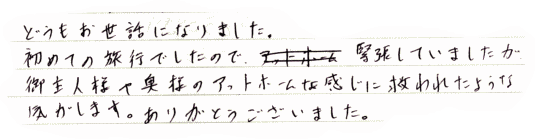 どうもお世話になりました。
初めての旅行でしたので、アットホーム 緊張していましたが
御主人様や奥様のアットホームな感じに救われたような
気がします。ありがとうございました。